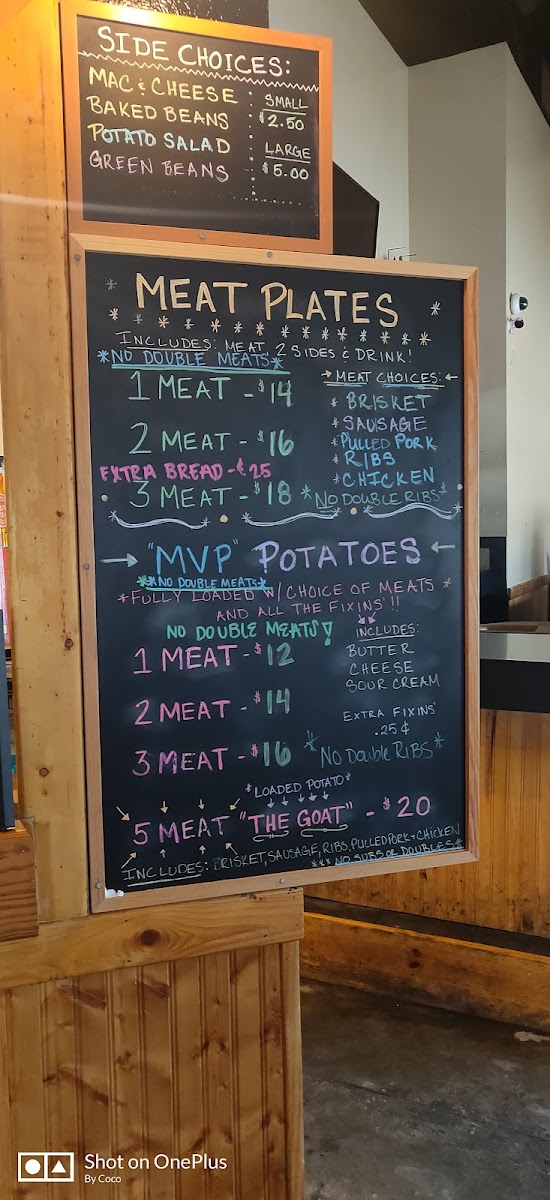 SIDE CHOICES:
MAC & CHEESE
BAKED BEANS
POTATO SALAD
GREEN BEANS
SMALL
$2.50
LARGE
$5.00
MEAT PLATES
INCLUDES: MEAT, 2 SIDES & DRINK!
*NO DOUBLE MEATS*
1 MEAT - $14
2 MEAT - $16
EXTRA BREAD - ¢.25
3 MEAT - $18
→ MEAT CHOICES: ←
* BRISKET
* SAUSAGE
* PULLED PORK
* RIBS
* CHICKEN
*NO DOUBLE RIBS*
→ "MVP" POTATOES ←
**NO DOUBLE MEATS*
*FULLY LOADED W/ CHOICE OF MEATS *
AND ALL THE FIXINS'!!
NO DOUBLE MEATS!
1 MEAT - $12
2 MEAT - $14
3 MEAT - $16
INCLUDES:
BUTTER
CHEESE
SOUR CREAM
EXTRA FIXINS'
.25¢
* NO DOUBLE RIBS*
*LOADED POTATO*
5 MEAT "THE GOAT" - $20
INCLUDES: BRISKET, SAUSAGE, RIBS, PULLED PORK + CHICKEN
*** NO SUBS OR DOUBLES*
Shot on OnePlus
By Coco